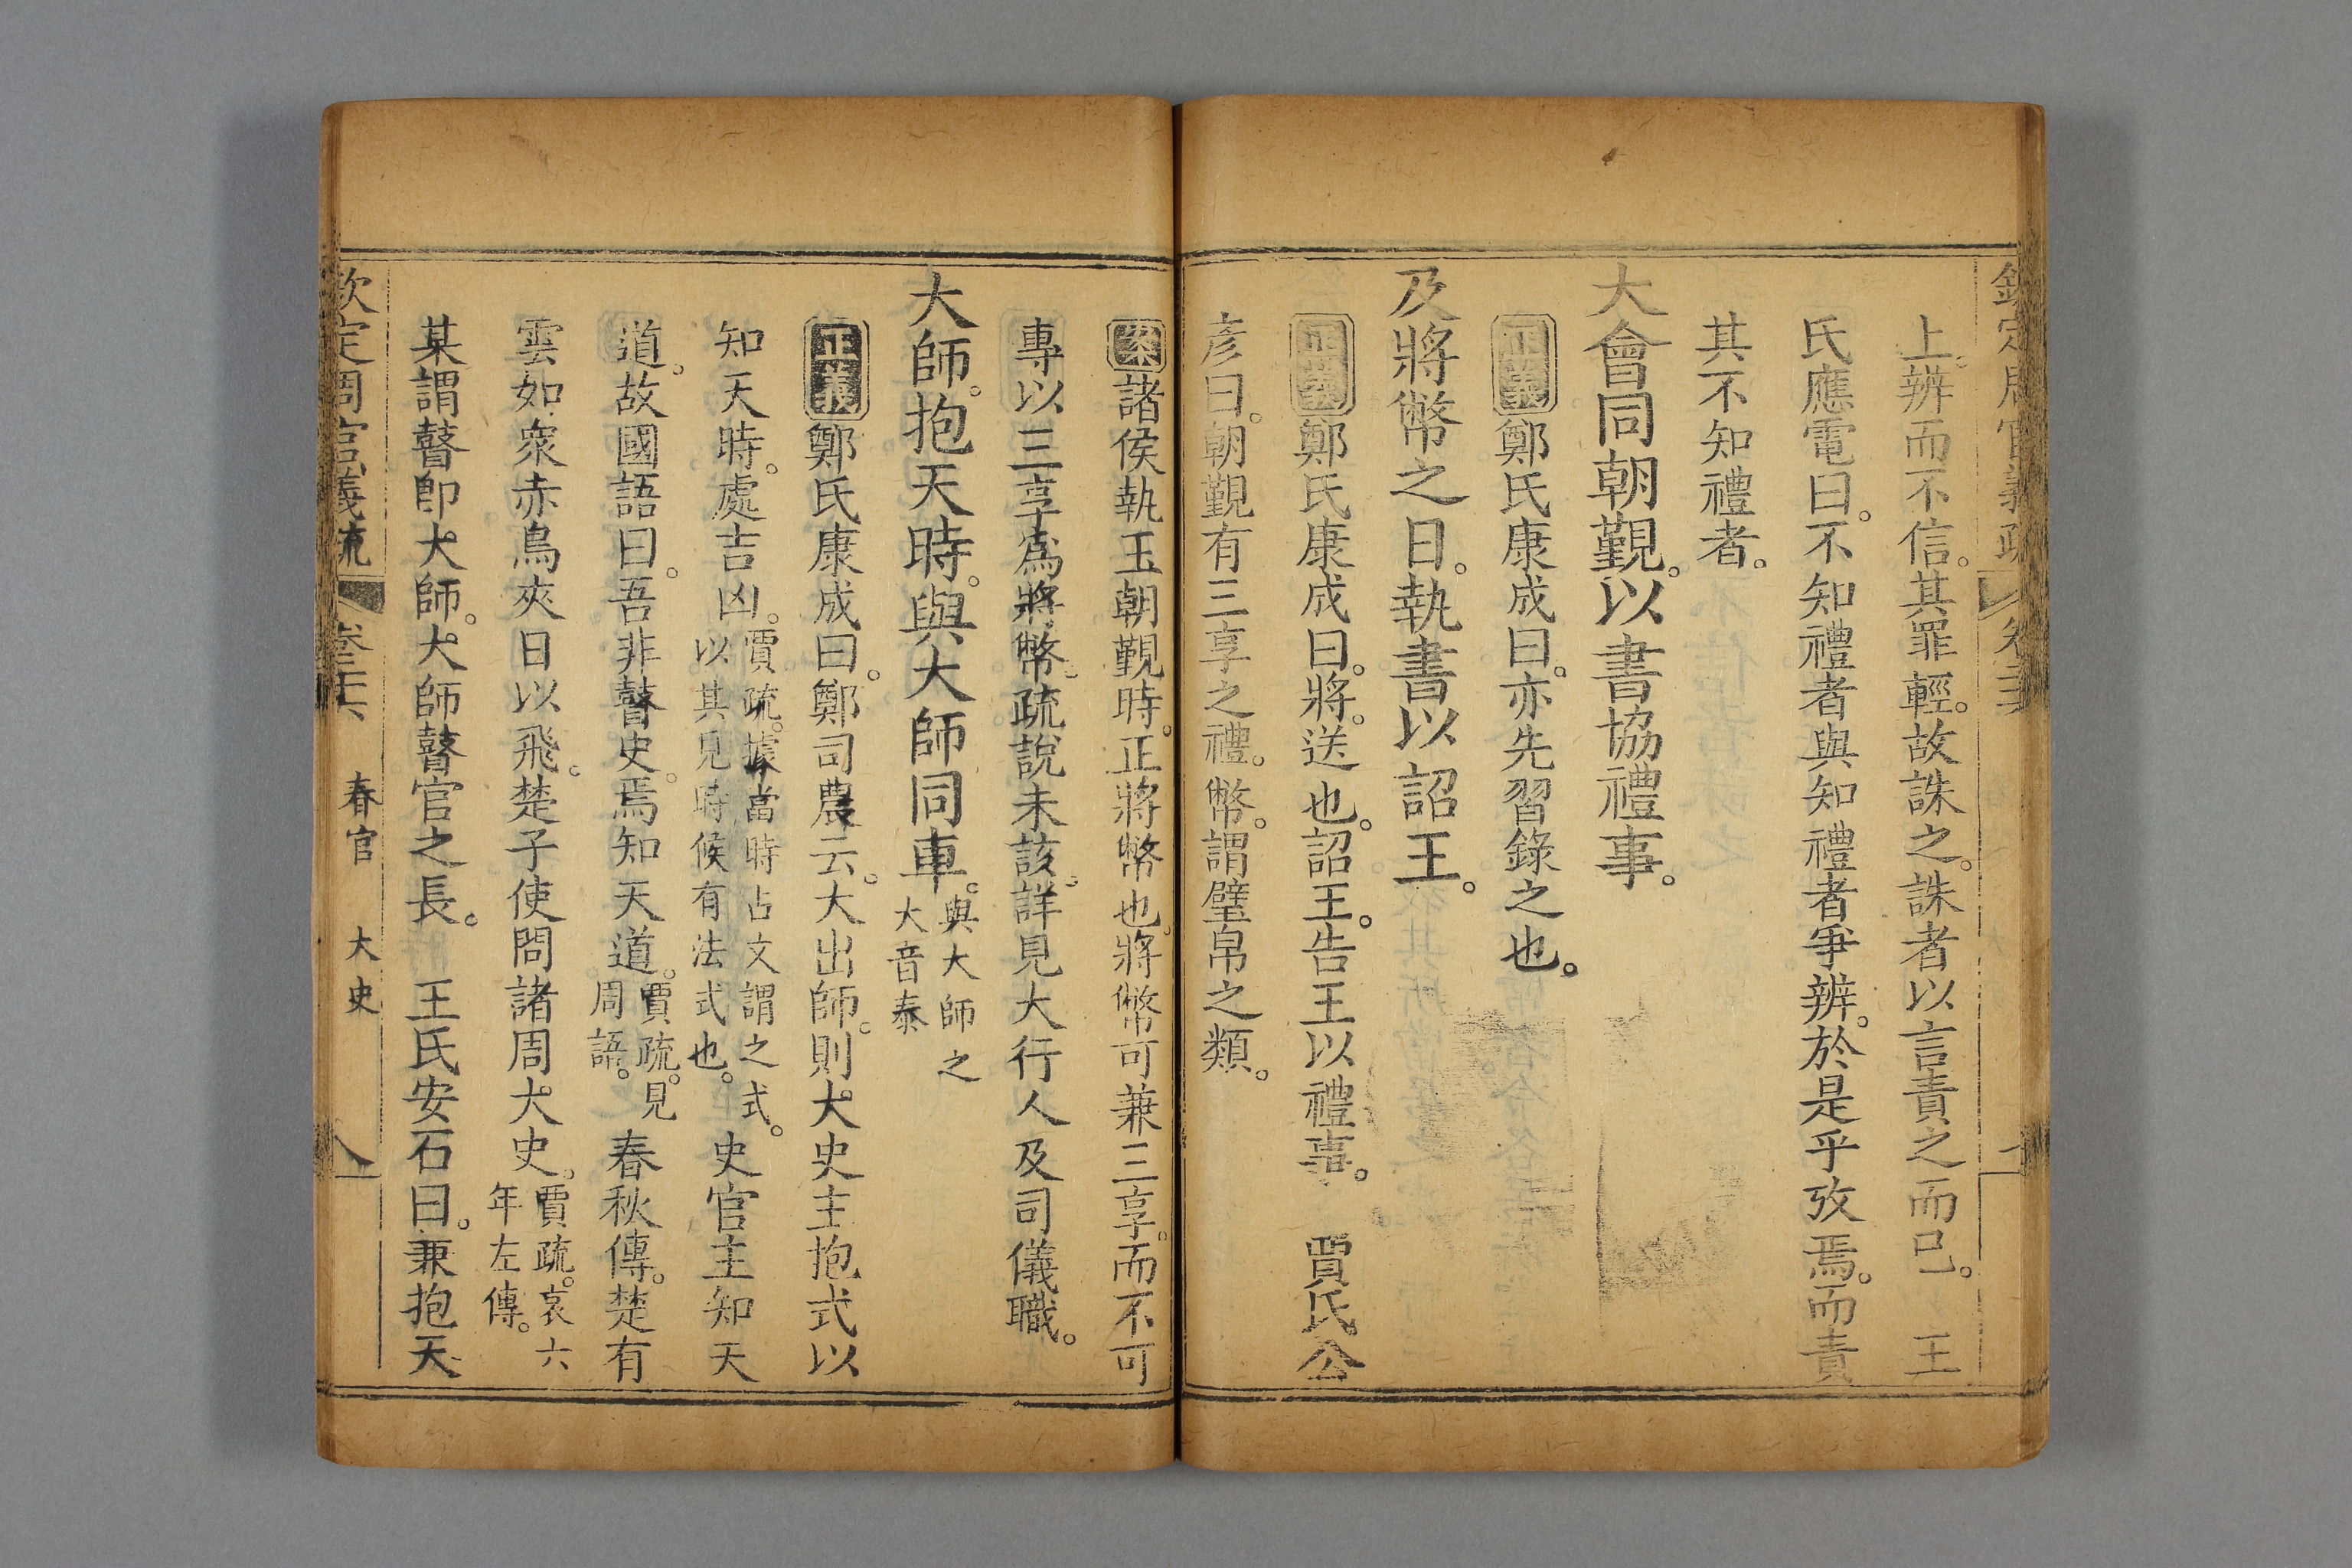 上。辨而不信。其罪輕。故誅之。誅者以言責之而已。　王
氏應電曰。不知禮者與知禮者爭辨。於是乎攷焉。而責
其不知禮者。
大會同朝覲。以書協禮事。
正義鄭氏康成曰。亦先習錄之也。
及將幣之日。執書以詔王。
正義鄭氏康成曰。將。送也。詔王。告王以禮事。　賈氏公
彦曰。朝覲有三享之禮。幣。謂璧帛之類。
案諸侯執玉朝覲時。正將幣也。將幣可兼三享。而不可
專以三享爲將幣。疏說未該。詳見大行人及司儀職。
大師。抱天時。與大師同車。與大師之大音泰
正義鄭氏康成曰。鄭司農云。大出師。則大史主抱式以
知天時。處吉凶。賈疏。據當時占文謂之式。以其見時候有法式也。史官主知天
道。故國語曰。吾非瞽史。焉知天道。賈疏。見周語。春秋傳。楚有
雲如衆赤鳥夾日以飛。楚子使問諸周大史。賈疏。哀六年左傳。
某謂瞽即大師。大師瞽官之長。　王氏安石曰。兼抱天
欽定周官義疏　卷二十六　春官　大史